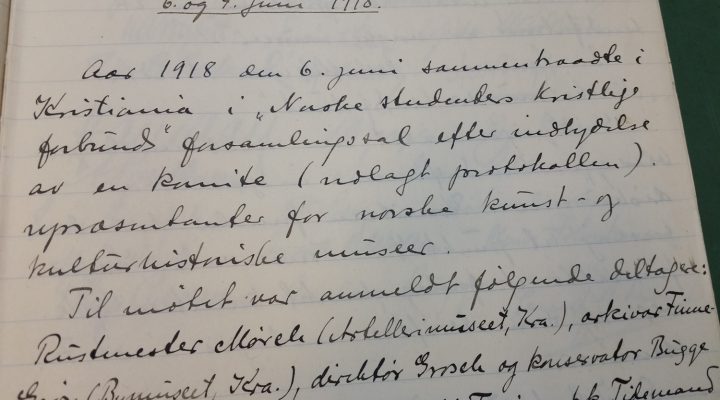 6. og 7. juni 1918.
Aar 1918 den 6. juni sammentraadte i
Kristiania i „Norske studenders kristlige
forbunds" forsamlingssal efter indbydelse
av en komite (vedlagt protokollen).
repræsentanter for norske kunst- og
kulturhistoriske museer.
Til møtet var anmeldt følgende deltagere:
Rustmester Mørch (Artillerimuseet, Kra.), arkivar Finne-
Grøn (Bymuseet, Kra.), direktør Grosch og konservator Bugge
Tidemand